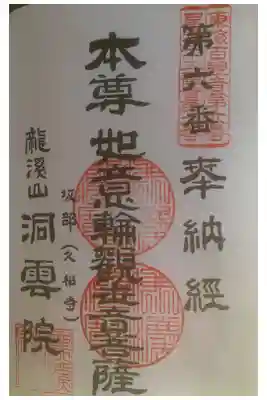 第六番
奉納経
本尊如意輪観世音菩薩
坂部(久相寺)
龍溪山洞雲院